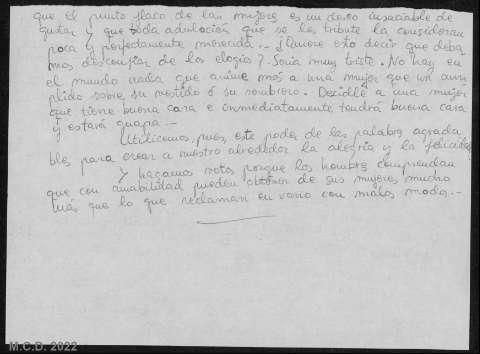 que el punto flaco de las mujeres es un deseo insaciable de
gustar y que toda adulación que se les tribute la consideran
poca y perfectamente merecida.. ¿Quiere esto decir que deba
mos desconfiar de los elogios? Sería muy triste. No hay en
el mundo nada que anime más a una mujer que un cum
plido sobre su vestido ó su sombrero. Decidle a una mujer
que tiene buena cara e inmediatamente tendrá buena cara
y estará guapa.-
Utilicemos, pues este poder de las palabras agrada
bles, para crear a nuestro alrededor la alegría y la felicidad
Y hagamos votos porque los hombres comprendan
que con amabilidad pueden obtener de sus mujeres mucho
más que lo que reclaman en vano con malos modos.-
M.C.D. 2022